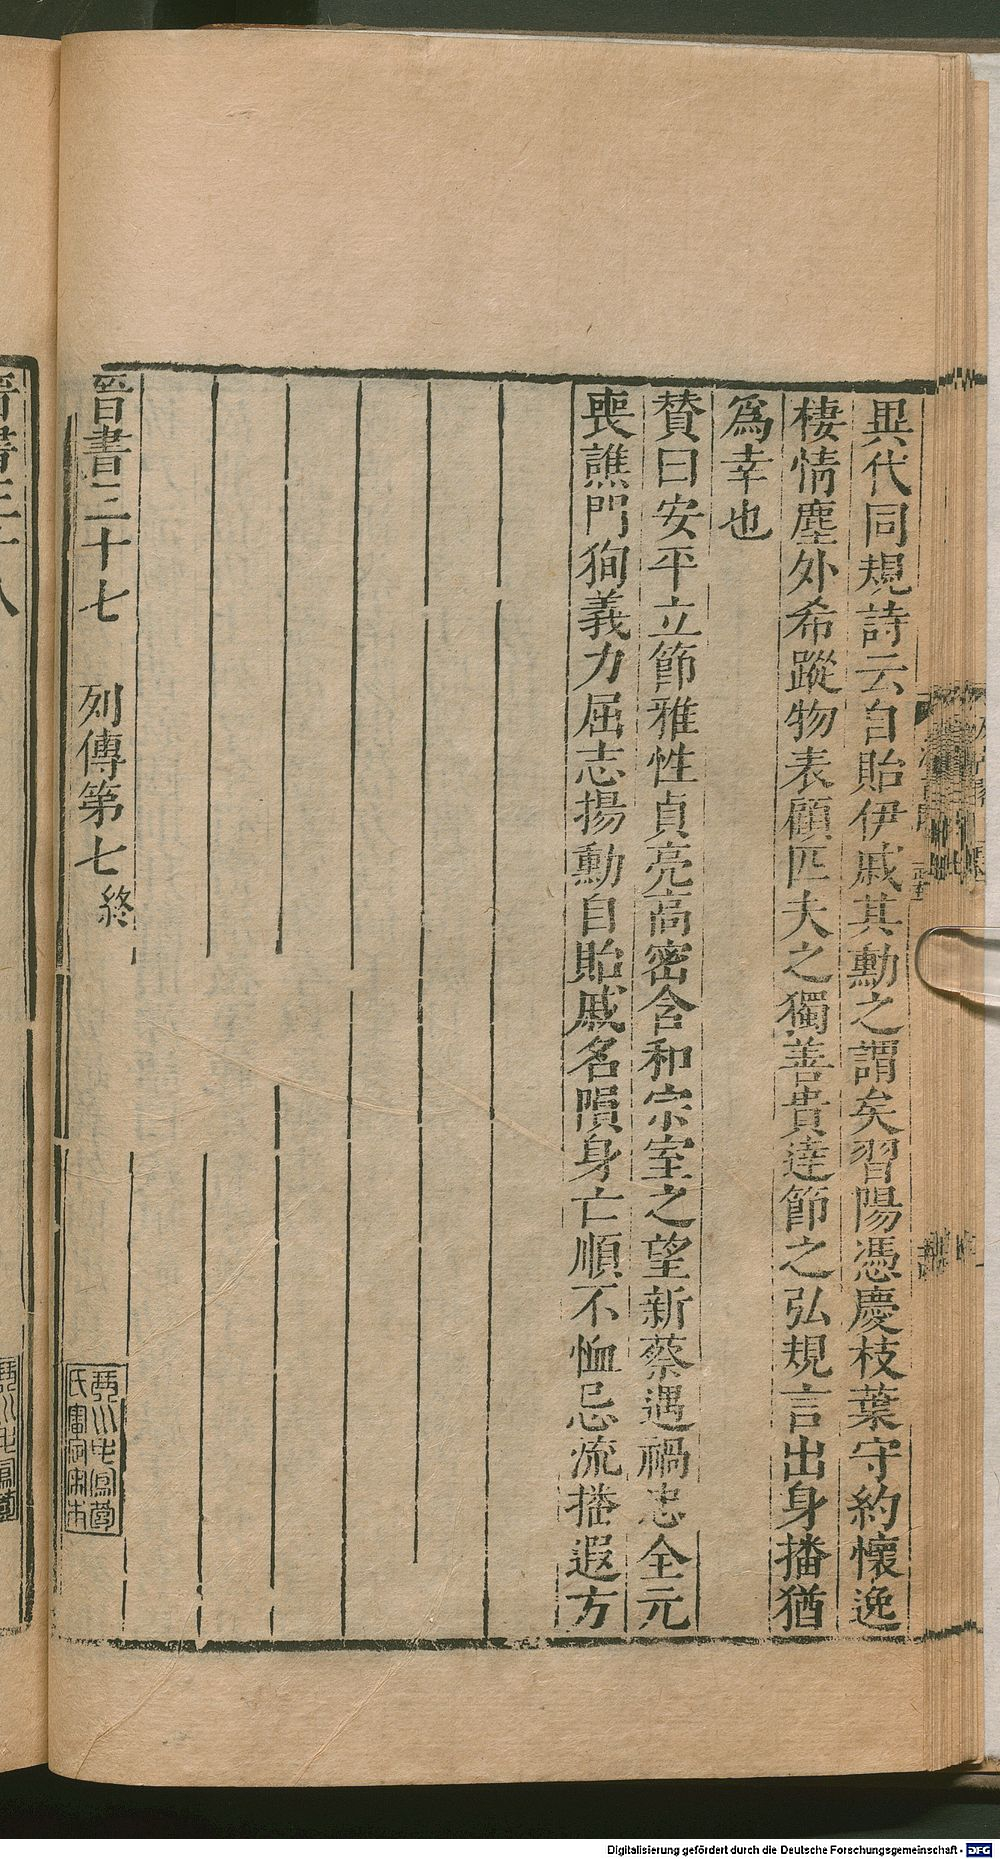 異代同規詩云自貽伊戚其勳之謂矣習陽憑慶枝葉守約懷逸
棲情塵外希蹤物表顧匹夫之獨善貴達節之弘規言出身播猶
爲幸也
贊曰安平立節雅性貞亮高密含和宗室之望新蔡遇禍忠全元
喪譙門狥義力屈志揚勳自貽戚名隕身亡順不恤忌流播遐方
晉書三十七 列傳第七終
琴川毛鳳苞
氏審定宋本
晉書三十八
Digitalisierung gefördert durch die Deutsche Forschungsgemeinschaft - DFG